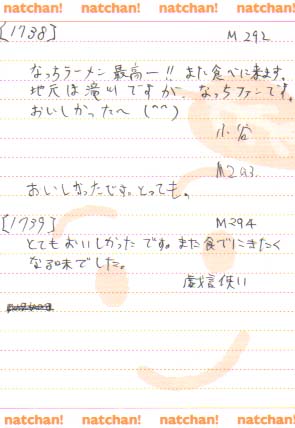 natchan! natchan! natchan! natchan!
[1738] M292
なっちラーメン最高ー!! また食べに来ます。
地元は滝川ですが、なっちファンです。
おいしかったへ (^^)
小谷
M293
おいしかったです。とっても。
[1739] M294
とてもおいしかったです。また食べにきたく
なる味でした。
戯言使い
natchan! natchan! natchan! natchan!